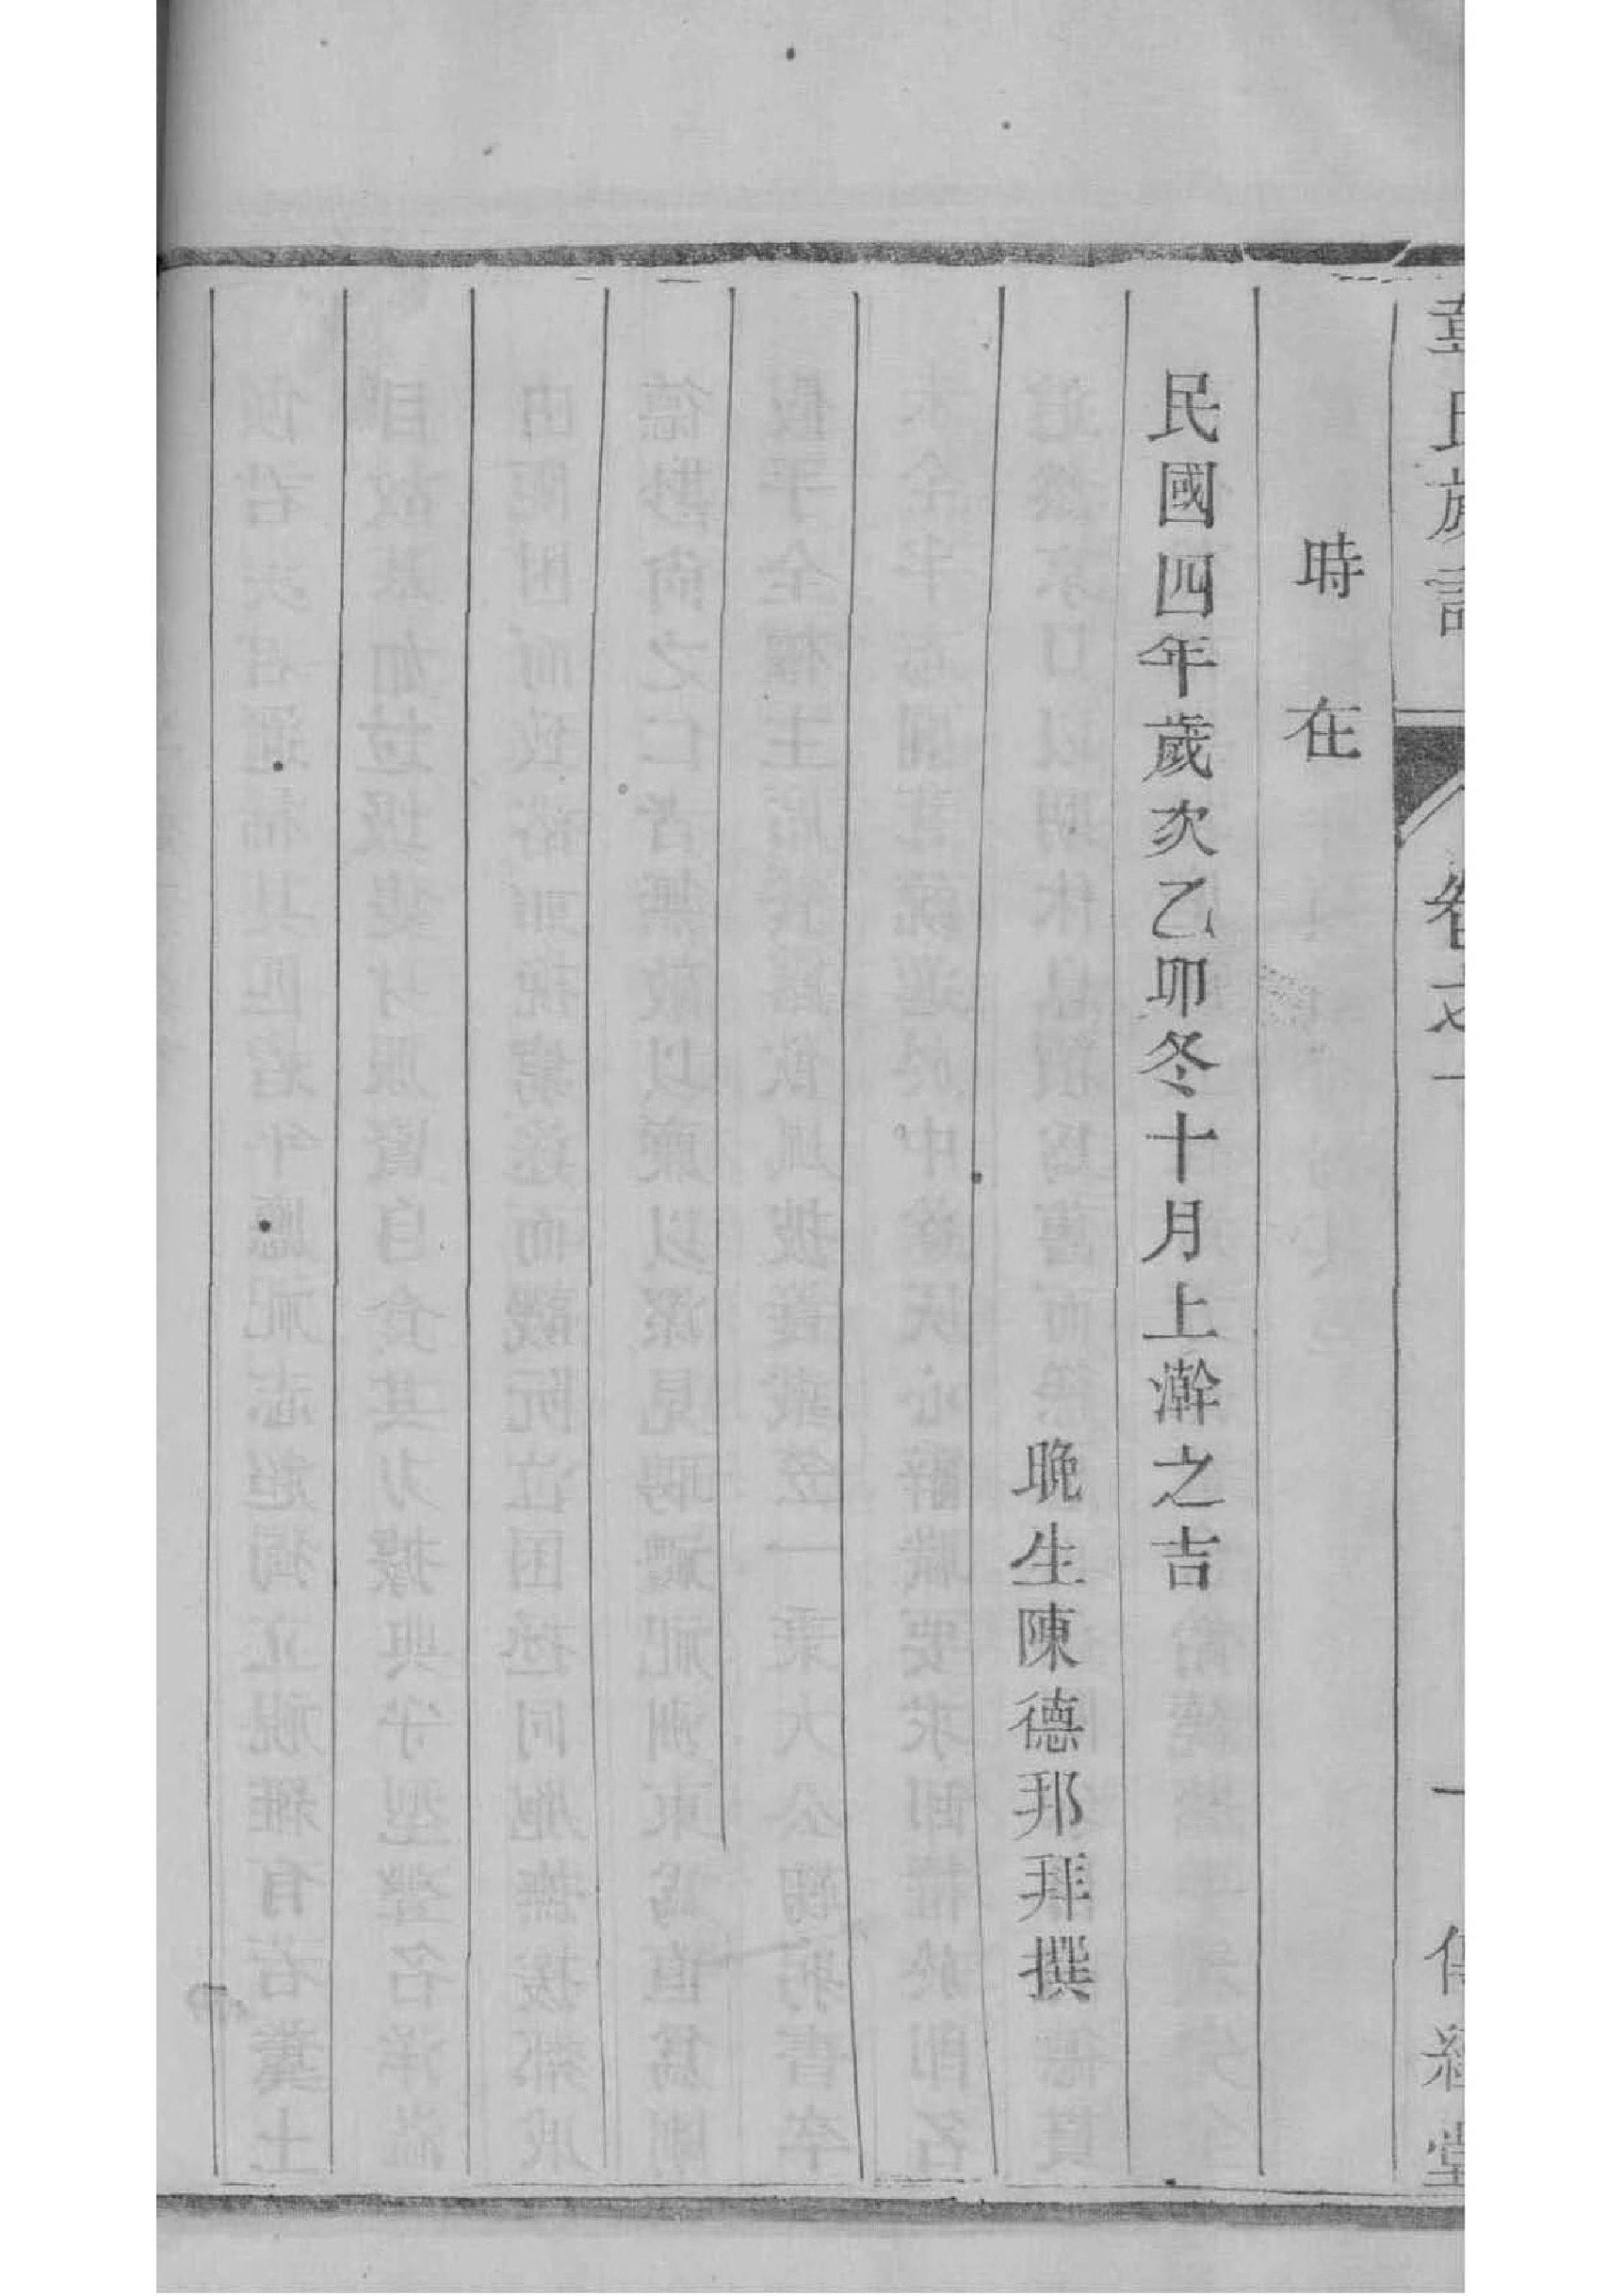 氏族譜 卷之一 一 傳經堂
時在
民國四年歲次乙卯冬十月上澣之吉
晚生陳德邦拜撰